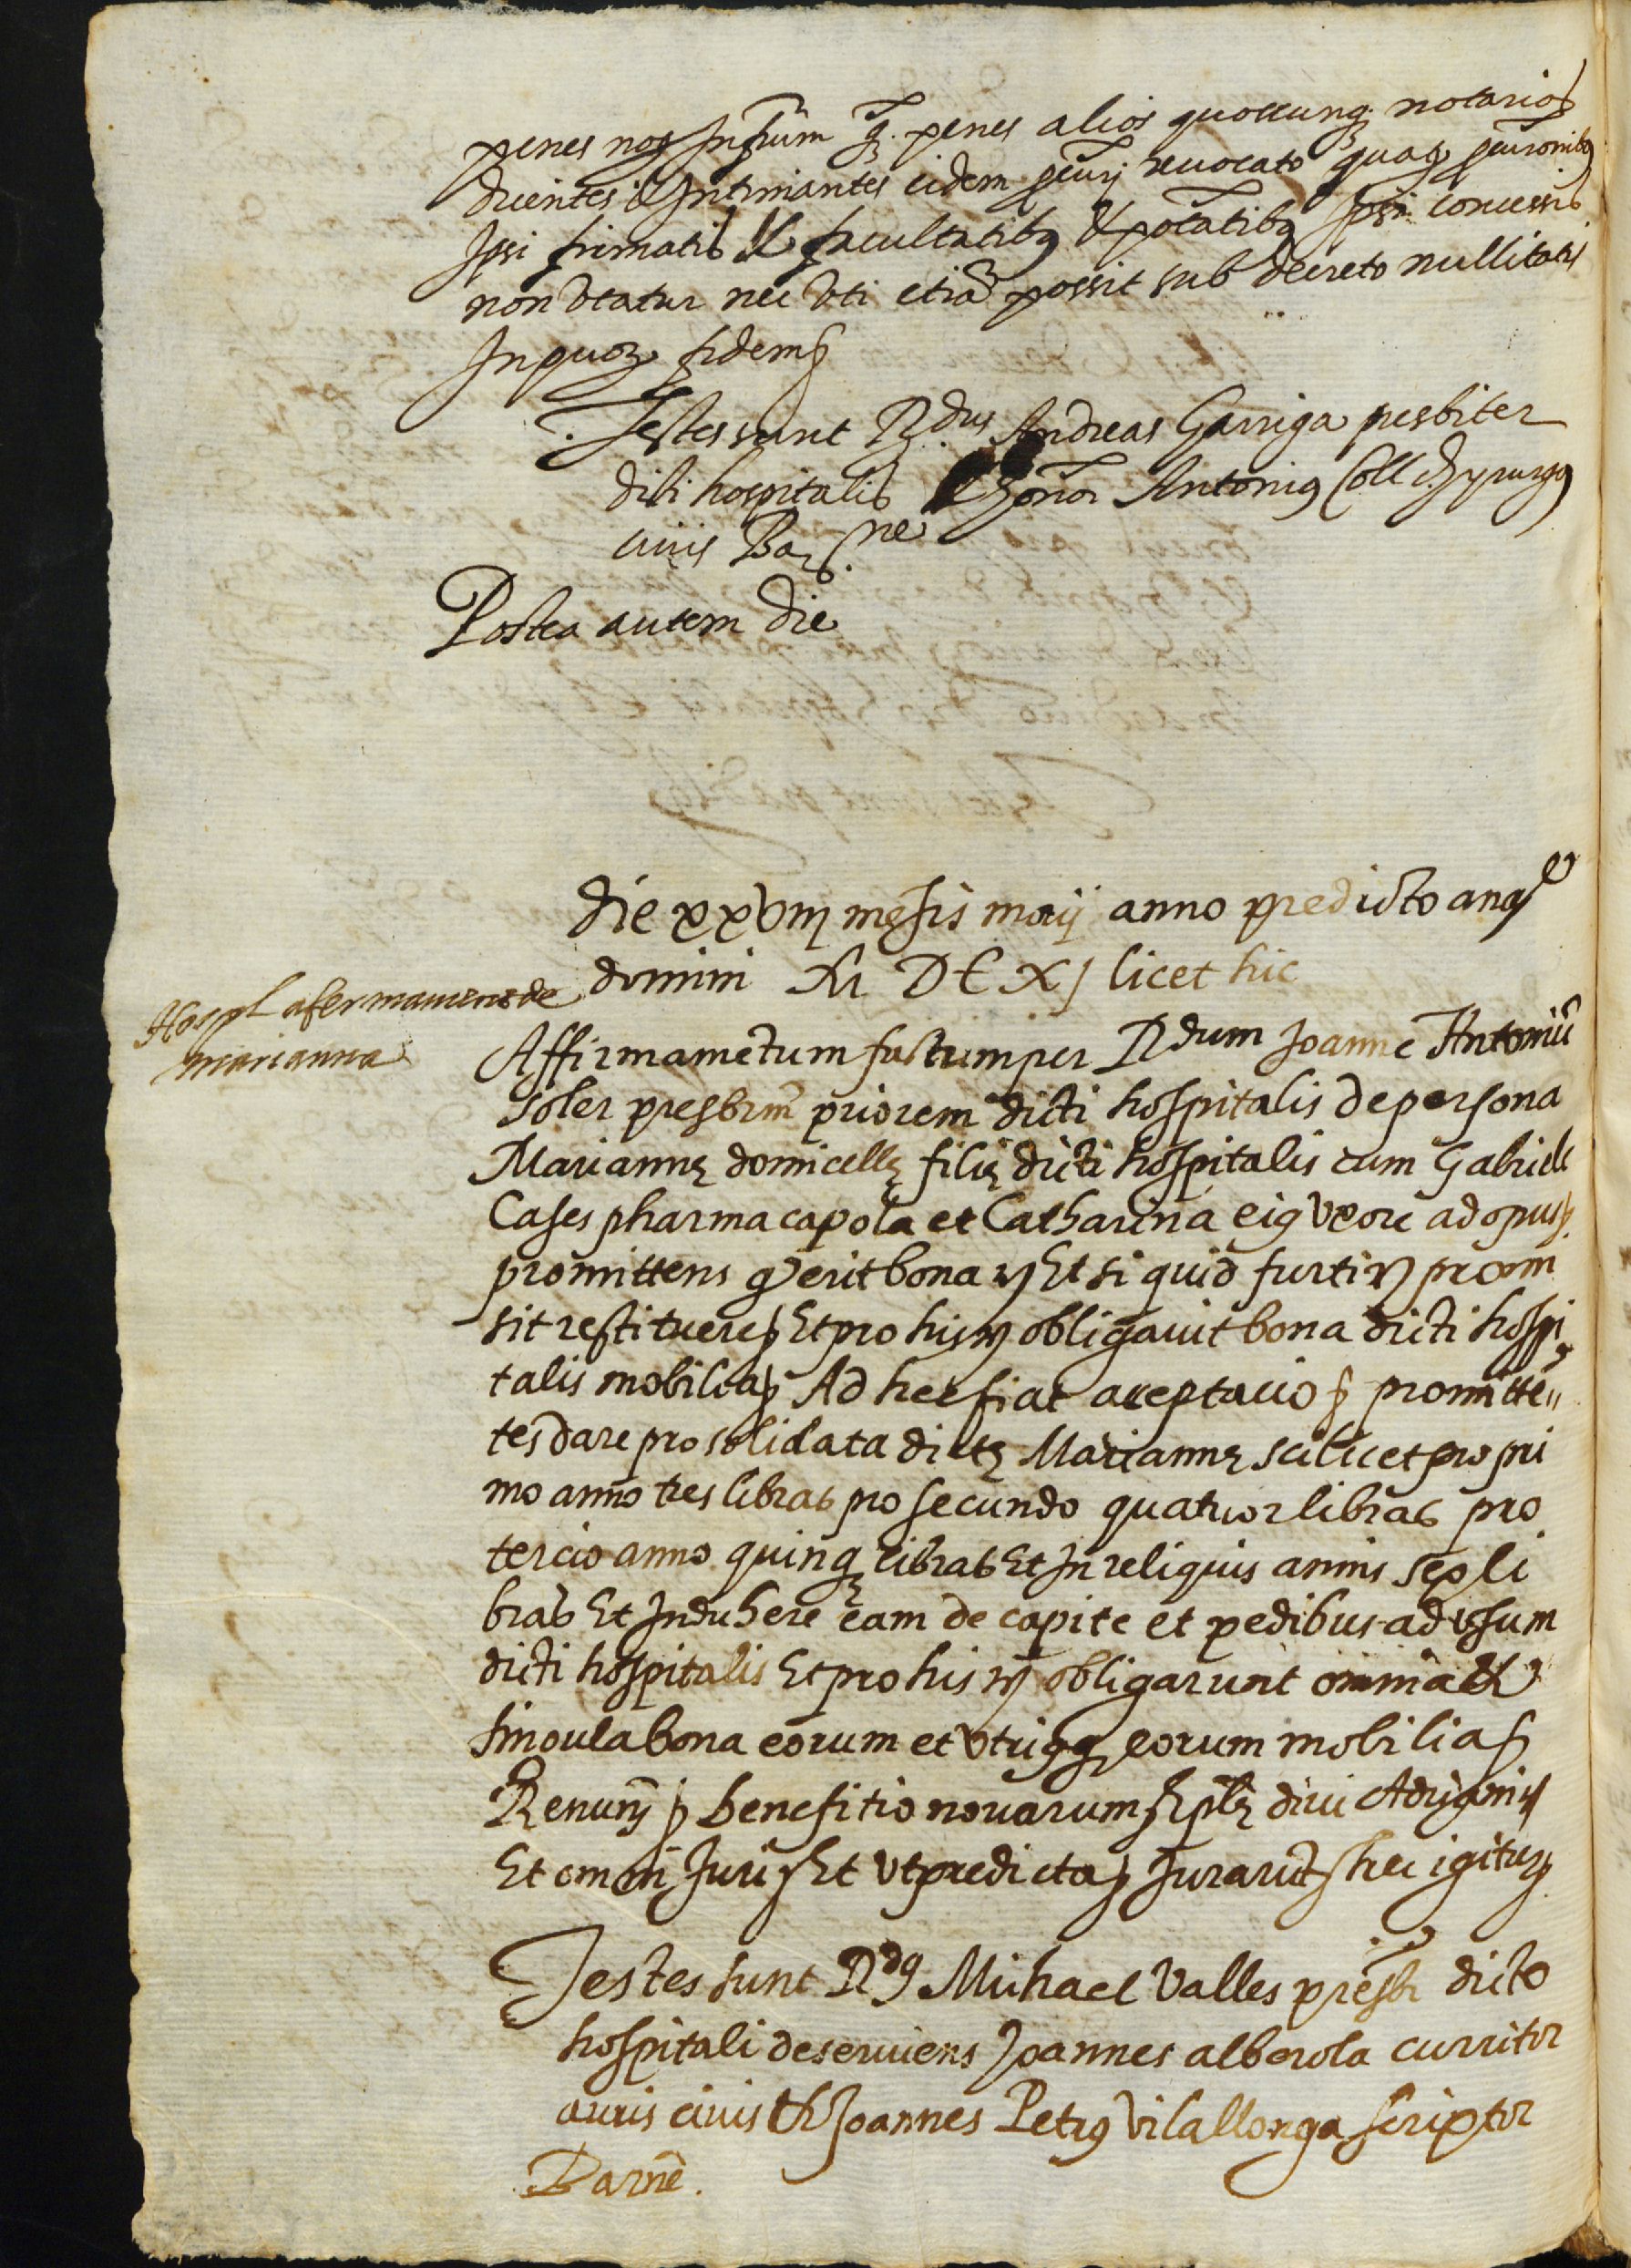 penes nos Instrum q̃ penes alios quoscunq notarios
dicentes & Intimantes eidem revocato
Ipsi firmatis & facultatibq & põtatibq Ipsi concessis
non vtatur nec vti etiã possit sub decreto nullitatis
In quoȝ fidem
Testes sunt Rdus Andreas Garriga presbiter
dicti hospitalis & honor Antoniq Coll chyrurgq
civis Barne
Postea autem die
die xxviij mẽsis maij anno predicto a
domini M DC XJ licet hic
Hospl afermament de
marianna
Affirmamẽtum factum per Rdum Joanne Antoniũ
soler presbrm̃ priorem dicti hospitalis de persona
Mariannę domicellę filię dicti hospitalis cum Gabriele
Cases pharmacapola et Catharina eiq vxore ad opus
promittens q erit bona Et si quid furti promi
sit restituere Et pro his obligavit bona dicti hospi
talis mobilia Ad hec fiat aceptacio promittẽ
tes dare pro solidata dictę Mariannę scilicet pro pri
mo anno tres libras pro secundo quatuor libras pro
tercio anno quinq libras Et In reliquis annis sex li
bras Et Induhere eam de capite et pedibus ad vsum
dicti hospitalis Et pro his obligarunt omnia &
singula bona eorum et vtriqq eorum mobilia
Renunõ benefitio novarum divi Adrianij
Et omni Juri Et vt predicta Jurarũt hec igitur
Testes sunt Rdq Michael Valles presbr dicto
hospitali deserviens Joannes alberola curritor
auris civis & Joannes Petrq Vilallonga scriptor
Barnẽ.